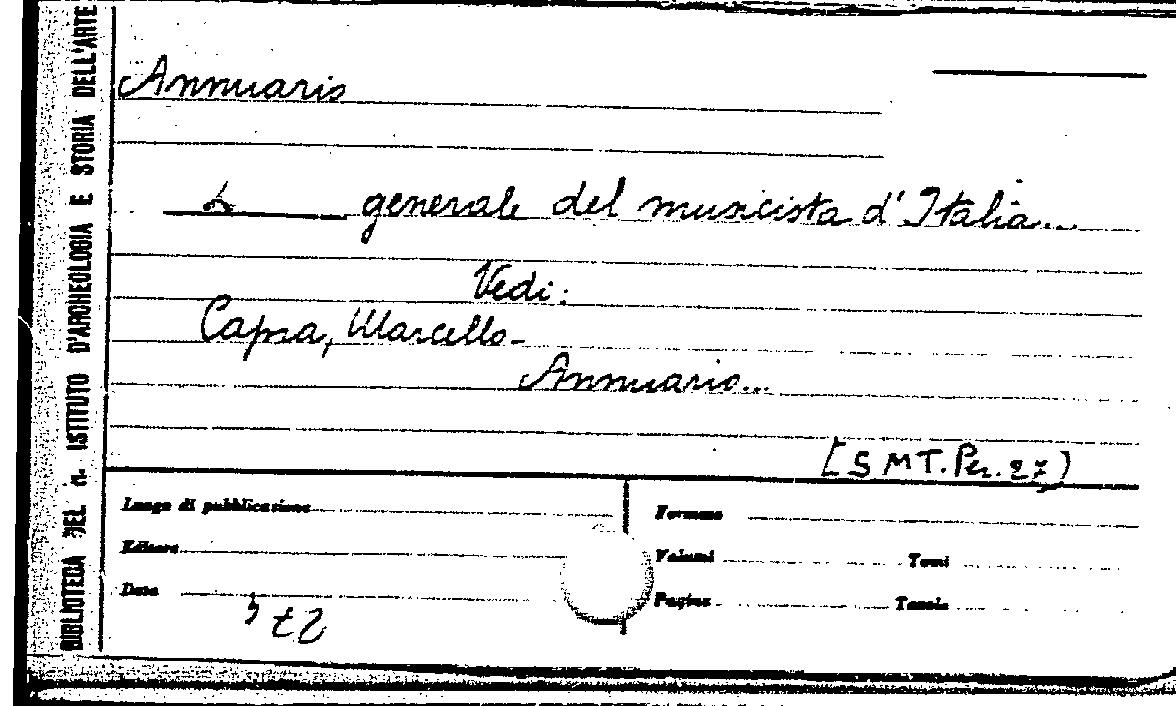 BIBLIOTECA DEL R. ISTITUTO D'ARCHEOLOGIA E STORIA DELL'ARTE
Annuario
generale del musicista d'Italia...
Vedi:
Capra, Marcello-
Annuario...
[SMT. Per. 27]
Luogo di pubblicazione
Formato
Editore
Volumi Tomi
Data
Pagine Tavole